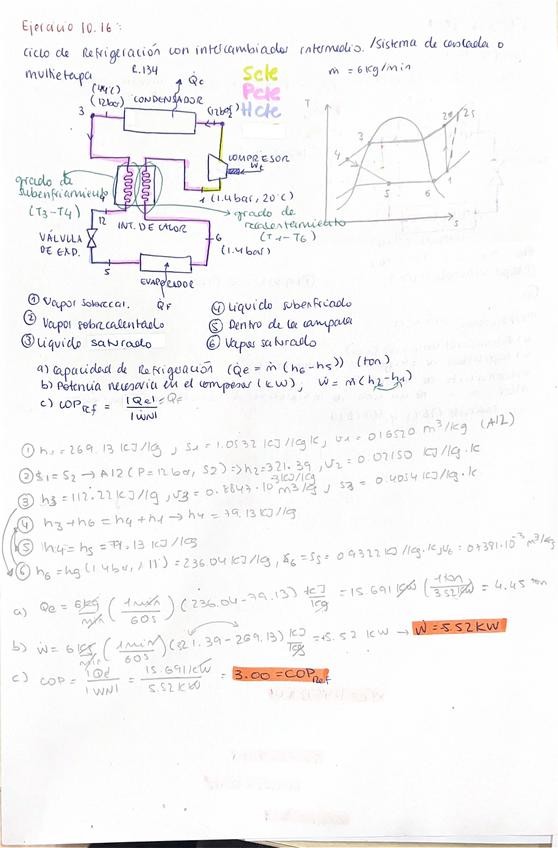 Ejercicio 10.16:
ciclo de Refrigeración con intercambiador intermedio. /Sistema de cascada o
multietapa R.134 ṁ = 6 kg/min
Scte
Pcte
Hcte
Q̇c
(44°C)
(12bar) CONDENSADOR (12bar)
3 2
COMPRESOR
Ẇc
1 (1.4 bar, 20°C)
grado de
subenfriamiento
(T3-T4)
4
12
INT. DE CALOR
grado de
recalentamiento
(T1-T6)
6
(1.4bar)
VÁLVULA
DE EXP.
5
EVAPORADOR
Q̇F
T
3
4
5
6
1
2s
s
① Vapor sobrecal. ④ Líquido subenfriado
② Vapor sobrecalentado ⑤ Dentro de la campana
③ Líquido saturado ⑥ Vapor saturado
a) Capacidad de Refrigeración (Q̇e = ṁ (h6-h5)) (ton)
b) Potencia necesaria en el compresor (kW), Ẇ = ṁ(h2-h1)
c) COPRef = |Q̇e|=Q̇F / |ẆN|
① h1 = 269.13 KJ/kg, s1 = 1.0532 KJ/kg K, v1 = 0.16520 m³/kg (A12)
② s1 = s2 → A12 (P=12bar, s2) => h2 = 321.39 KJ/kg, v2 = 0.02150
③ h3 = 112.22 KJ/kg, v3 = 0.8847·10⁻³ m³/kg, s3 = 0.4054 KJ/kg·K
④ h3+h6 = h4+h1 → h4 = 79.13 KJ/kg
⑤ h4 = h5 = 79.13 KJ/kg
⑥ h6 = hg (1.4bar, ) = 236.04 KJ/kg, = 0.9322 KJ/kg·K
a) Q̇e = 6 kg/min (1min/60s) (236.04-79.13) KJ/kg = 15.691 KW (1ton/3.52KW) = 4.45 ton
b) Ẇ = 6 kg/min (1min/60s) (321.39-269.13) KJ/kg = 5.52 KW → Ẇ = 5.52KW
c) COP = |Q̇e|/|ẆN| = 15.691KW/5.52KW = 3.00 = COPRef